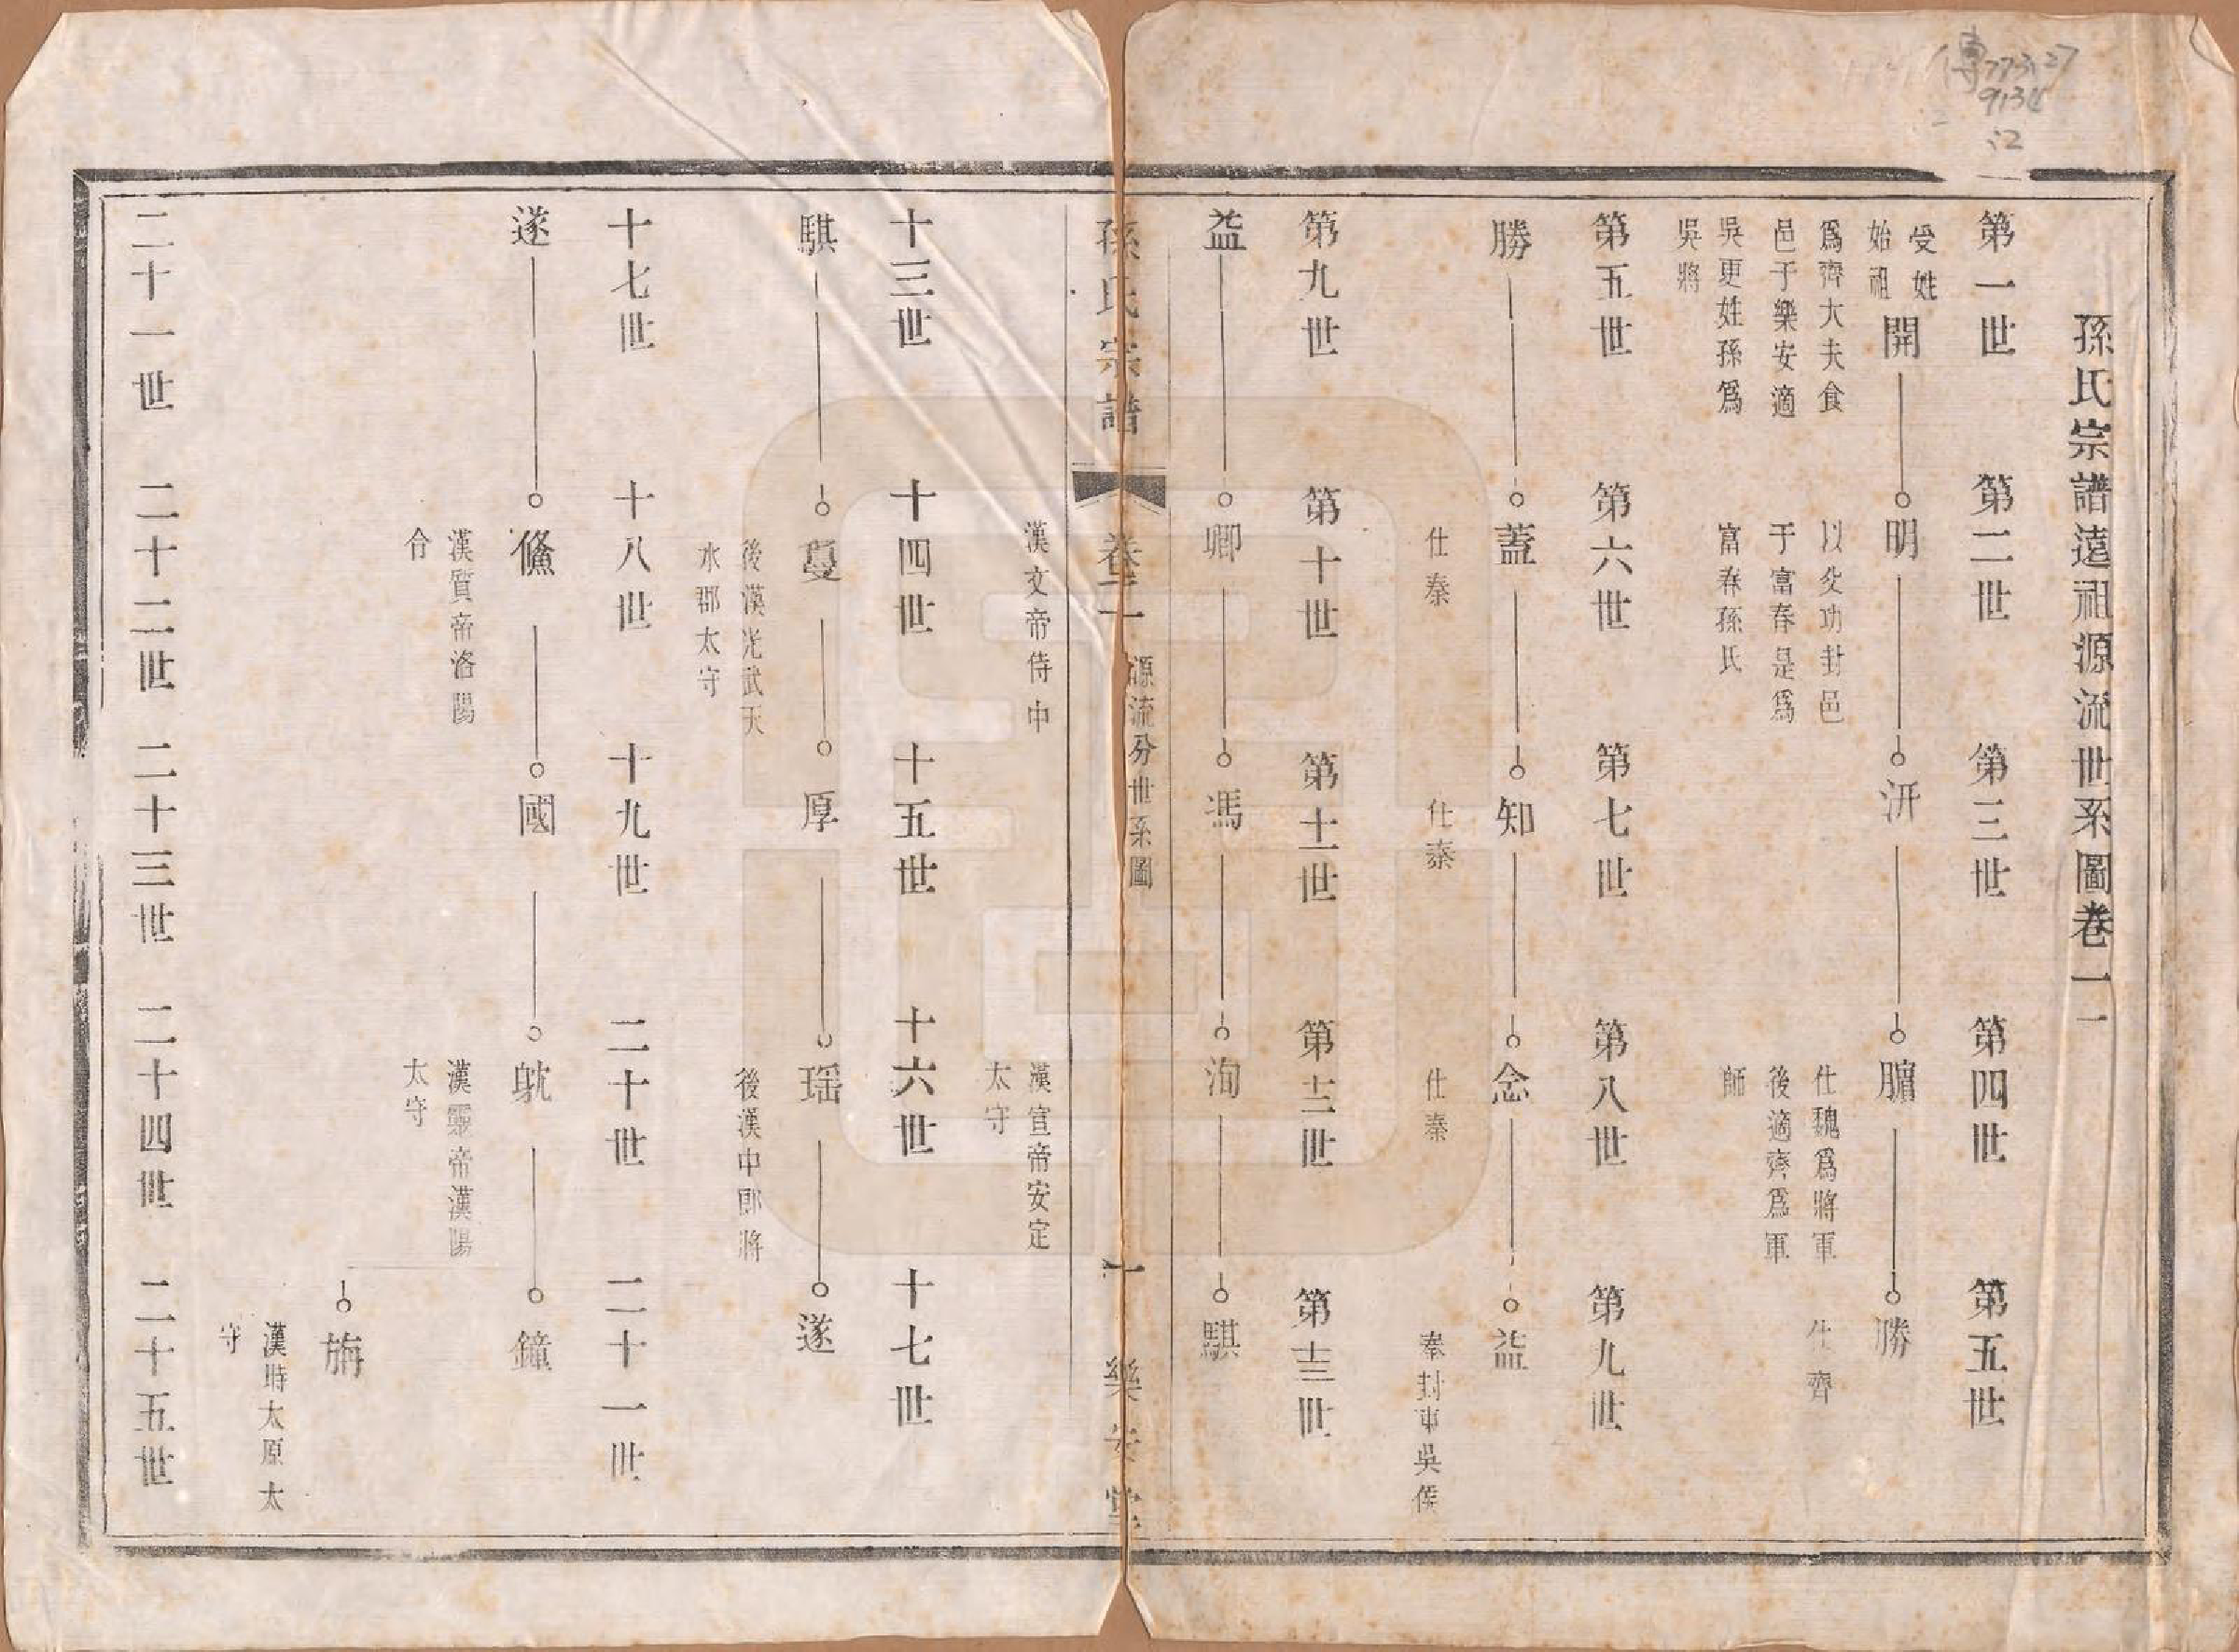 孫氏宗譜遠祖源流世系圖卷二
第一世　第二世　第三世　第四世　第五世
受姓始祖　開　明　汧　臏　勝
爲齊大夫食
邑于樂安適
吳更姓孫爲
吳將
以父功封邑
于富春是爲
富春孫氏
仕魏爲將軍
後適齊爲軍
師
仕齊
第五世　第六世　第七世　第八世　第九世
勝　蓋　知　念　益
仕秦
仕秦
仕秦
秦封車吳侯
第九世　第十世　第十一世　第十二世　第十三世
益　卿　馮　洵　騏
孫氏宗譜　卷二　源流分世系圖　一　樂安堂
漢文帝侍中
漢宣帝安定
太守
十三世　十四世　十五世　十六世　十七世
騏　蔓　厚　瑶　遂
後漢光武天
水郡太守
後漢中郎將
十七世　十八世　十九世　二十世　二十一世
遂　儵　國　躭　鐘
漢質帝洛陽
令
漢靈帝漢陽
太守
旃
漢時太原太
守
二十一世　二十二世　二十三世　二十四世　二十五世
傳
773.27
9134
:2